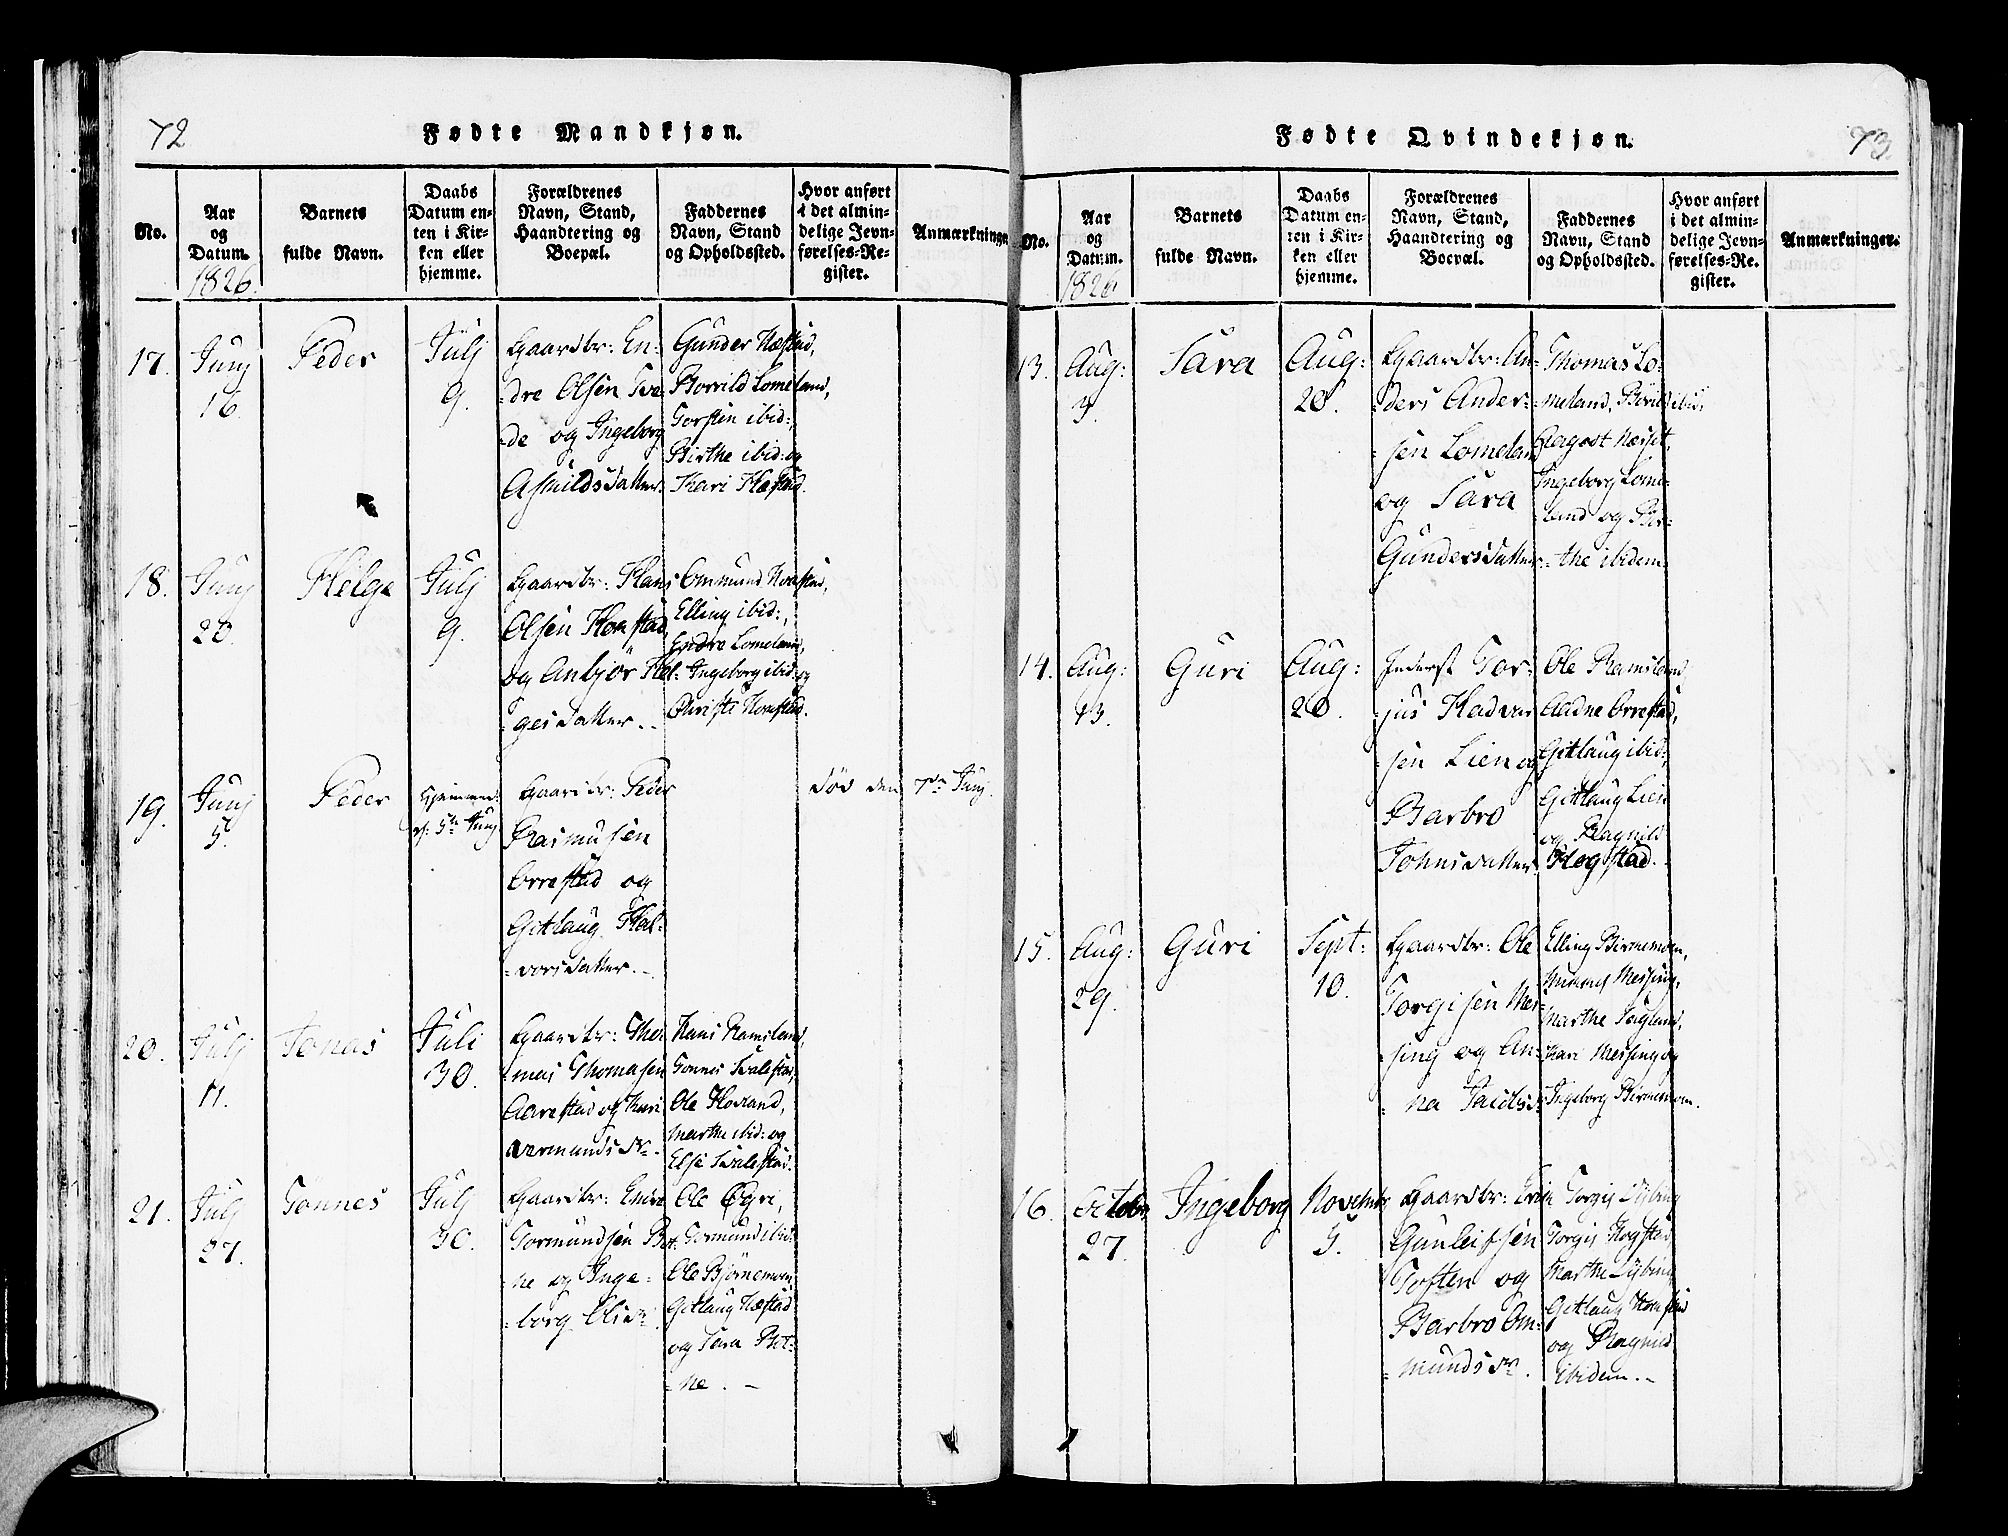 72
Fødte Mandkjøn.
No.
Aar
og
Datum.
1826.
Barnets
fulde Navn.
Daabs
Datum en-
ten i Kir-
ken eller
hjemme.
Forældrenes
Navn, Stand,
Haandtering og
Boepæl.
Faddernes
Navn, Stand
og Opholdssted.
Hvor anført
i det almin-
delige Jevn-
førelses-Re-
gister.
Anmærkninge
17.
Junj
16.
Peder
Julj
9.
Gaardbr: En-
-dre Olsen Tve
-de og Ingeborg
Asuldsdatter.
Gunder Hæstad,
Borrild Lomeland,
Torsten ibid:,
Birthe ibid: og
Kari Hæstad.
18.
Junj
20.
Helge
Julj
9.
Gaardbr: Hans
Olsen Homstad,
og Anbjør Hel-
-gesdatter.
Ommund Homstad,
Elling ibid:,
Endre Lomeland,
Ingeborg ibid: og
Christi Homstad.
19.
Junj
5.
Peder
Hjemmed:
d: 5te Junj
Gaardbr: Peder
Rasmusen
Orrestad og
Gitlaug Hal-
-vorsdatter.
død den 7de Junj.
20.
Julj
11.
Jonas
Juli
30.
Gaardbr: Tho-
-mas Thomasen
Aarestad og Kari
Aarmundsdr.
Hans Ramsland,
Tønnes Svalestad,
Ole Hovland,
Marthe ibid: og
Else Svalestad.
21.
Julj
27.
Tønnes
Julj
30.
Gaardbr: Endre
Tormundsen Bot-
-ne og Inge-
-borg Olsdr.
Ole Øgri,
Tormund ibid:
Ole Bjørnemoen,
Gitlaug Hæstad
og Sara Bot-
-ne.
73.
Fødte Qvindekjøn.
No.
Aar
og
Datum.
1826
Barnets
fulde Navn.
Daabs
Datum en-
ten i Kir-
ken eller
hjemme.
Forældrenes
Navn, Stand,
Haandtering og
Boepæl.
Faddernes
Navn, Stand
og Opholdssted.
Hvor anført
i det almin-
delige Jevn-
førelses-Re-
gister.
Anmærkninger.
13.
Aug:
3.
Sara
Aug:
20.
Gaardbr: An-
-ders Ander-
-sen Lomeland
og Sara
Gundersdatter
Thomas Lo-
-meland, Børild ibid:
Aagodt Næset,
Ingeborg Lome-
-land og Bir-
-the ibidem.
14.
Aug:
13.
Guri
Aug:
20.
Inderst Tor-
-jus Hadvar
-sen Lien og
Barbro
Johnsdatter
Ole Ramsland
Aadne Orrestad,
Gitlaug ibid:,
Gitlaug Lien
og Ragnild
Hegstad.
15.
Aug:
29.
Guri
Sept:
10.
Gaardbr: Ole
Torgisen Mes-
-sing og An-
-na Jacobsd:
Elling Birnemoen,
Messing,
Marthe Sagland,
Kari Messing og
Ingeborg Birnemoen.
16.
October
27.
Ingeborg
Novembr
5.
Gaardbr: Erik
Gunleifsen
Toften og
Barbro Om-
-mundsdr.
Torgis Lybing
Torgis Hogstad,
Marthe Lybing
Gitlaug Homstad
og Ragnild
ibidem.